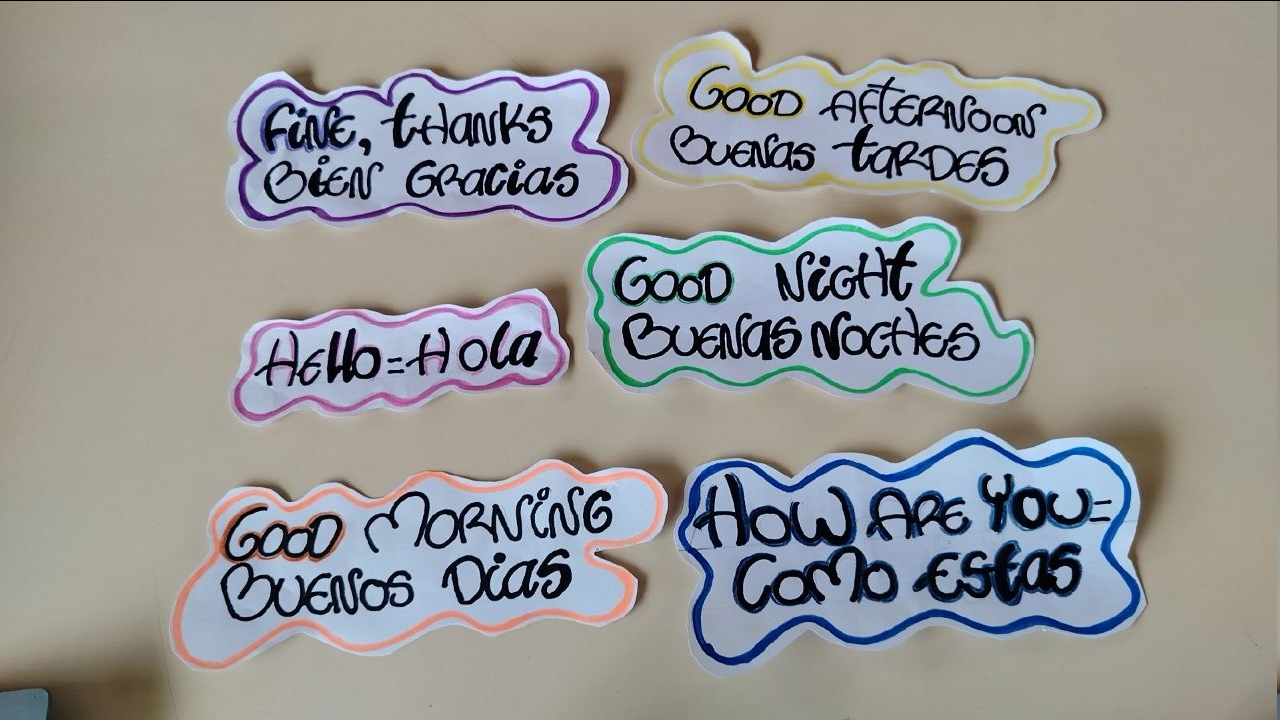 FINE, tHANKS
BIEN GRaciaS
GOOD AFtERNOON
BUENaS taRDES
HEllo=Hola
GOOD NiGHt
BUENaS NOCHES
GOOD MORNiNG
BUENOS DiaS
HOW ARE YOU=
COMO EStaS